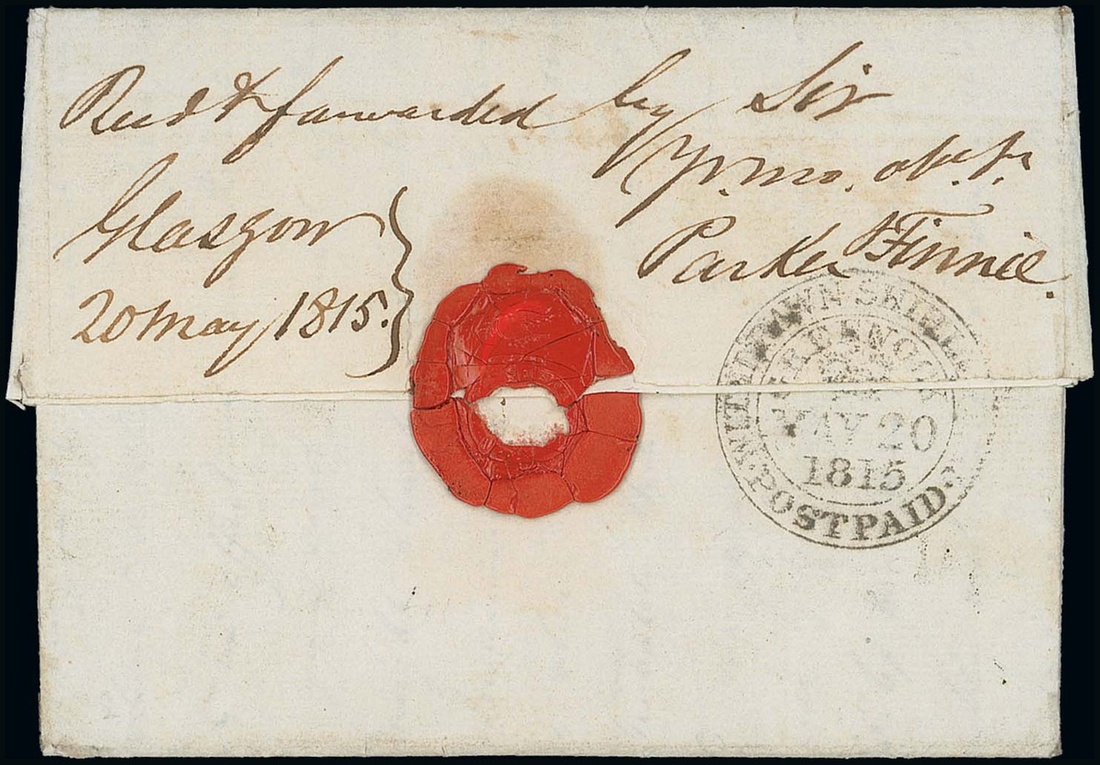 Recd & forwarded by Sir
Yr. mo. obt. st.
Parker & Finnie.
Glasgow
20 May 1815.
MAY 20
1815
POSTPAID